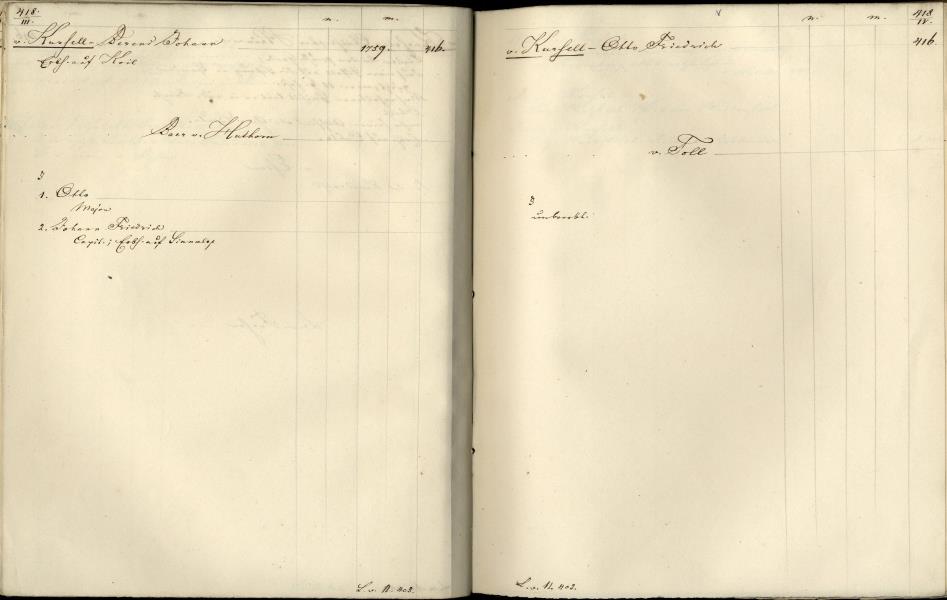 418.
III.
n. m.
v. Kursell - Berend Johann 1759. 416.
Erbh. auf Koil
Baer v. Huthorn
3
1. Otto
Major
2. Johann Friedrich
Capit.; Erbh. auf Sinnalep
L. v. N. 403.
n. m.
418
IV.
v. Kursell - Otto Friedrich 416.
v. Toll
3
unbeerbt.
L. v. N. 403.